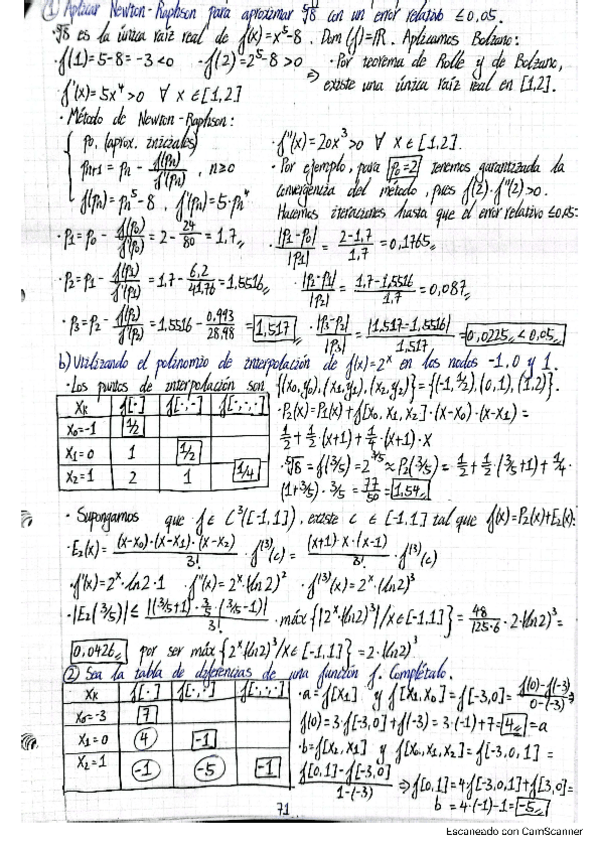 ① Aplicar Newton-Raphson para aproximar ⁵√8 con un error relativo ≤0,05.
· ⁵√8 es la única raíz real de f(x)=x⁵-8. Dom(f)=ℝ. Aplicamos Bolzano:
· f(1)=5-8=-3<0 · f(2)=2⁵-8>0 · Por teorema de Rolle y de Bolzano,
⇒ existe una única raíz real en [1,2].
· f'(x)=5x⁴>0 ∀ x∈[1,2]
· Método de Newton-Raphson:
p₀, (aprox. iniciales) · f''(x)=20x³>0 ∀ x∈[1,2].
pₙ₊₁=pₙ - f(pₙ)/f'(pₙ), n≥0 · Por ejemplo, para p₀=2 tenemos garantizada la
convergencia del método, pues f(2)·f''(2)>0.
f(pₙ)=pₙ⁵-8, f'(pₙ)=5·pₙ⁴ Hacemos iteraciones hasta que el error relativo ≤0,05:
· p₁=p₀ - f(p₀)/f'(p₀) = 2 - 24/80 = 1,7 · |p₁-p₀|/|p₁| = 2-1,7/1,7 = 0,1765
· p₂=p₁ - f(p₁)/f'(p₁) = 1,7 - 6,2/41,76 = 1,5516 · |p₂-p₁|/|p₂| = 1,7-1,5516/1,7 = 0,087
· p₃=p₂ - f(p₂)/f'(p₂) = 1,5516 - 0,993/28,98 = 1,517 · |p₃-p₂|/|p₃| = |1,517-1,5516|/1,517 = 0,0225 ≤ 0,05
b) Utilizando el polinomio de interpolación de f(x)=2ˣ en los nodos -1, 0 y 1.
· Los puntos de interpolación son {(x₀,y₀),(x₁,y₁),(x₂,y₂)}={(-1,½),(0,1),(1,2)}.
xₖ f[·] f[·,·] f[·,·,·]
x₀=-1 1/2
x₁=0 1 1/2
x₂=1 2 1 1/4
· P₂(x)=P₁(x)+f[x₀,x₁,x₂]·(x-x₀)·(x-x₁)=
1/2+1/2·(x+1)+1/4·(x+1)·x
· ⁵√8=f(3/5)=2^3/5≈P₂(3/5)=1/2+1/2·(3/5+1)+1/4·
(1+3/5)·3/5=77/50=1,54
· Supongamos que f∈C³([-1,1]), existe c∈[-1,1] tal que f(x)=P₂(x)+E₂(x):
· E₂(x)=(x-x₀)·(x-x₁)·(x-x₂)/3!·f⁽³⁾(c)=(x+1)·x·(x-1)/3!·f⁽³⁾(c)
· f'(x)=2ˣ·ln2·1 · f''(x)=2ˣ·(ln2)² · f⁽³⁾(x)=2ˣ·(ln2)³
· |E₂(3/5)|≤|(3/5+1)·3/5·(3/5-1)|/3!·máx{|2ˣ·(ln2)³|/x∈[-1,1]}=48/125·6·2·(ln2)³=
0,0426 por ser máx{2ˣ·(ln2)³/x∈[-1,1]}=2·(ln2)³
② Sea la tabla de diferencias de una función f. Complétalo.
xₖ f[·] f[·,·] f[·,·,·]
x₀=-3 7
x₁=0 4 -1
x₂=1 -1 -5 -1
· a=f[x₁] y f[x₁,x₀]=f[-3,0]=f(0)-f(-3)/0-(-3)⇒
f(0)=3·f[-3,0]+f(-3)=3·(-1)+7=4=a
· b=f[x₂,x₁] y f[x₀,x₁,x₂]=f[-3,0,1]=
f[0,1]-f[-3,0]/1-(-3)⇒f[0,1]=4·f[-3,0,1]+f[3,0]=
b=4·(-1)-1=-5
71
Escaneado con CamScanner